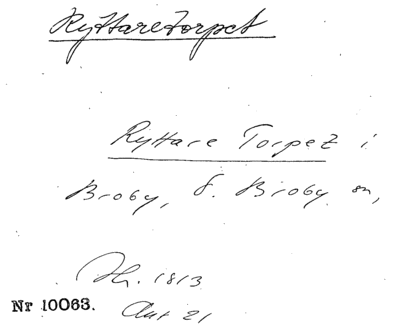 Ryttaretorpet
Ryttare Torpet i
Broby, Ö. Broby sn,
Hr. 1813
Aut 21
Nr 10063.